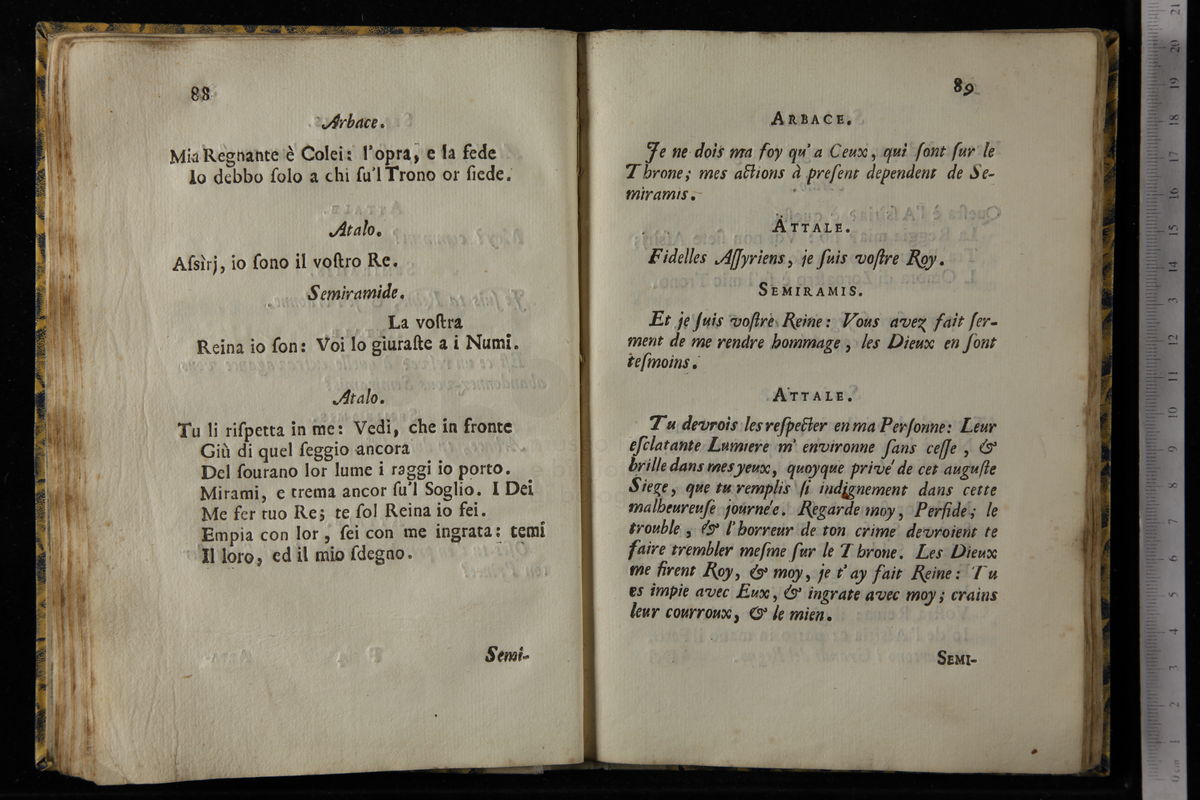 88
Arbace.
Mia Regnante è Colei: l'opra, e la fede
Io debbo ſolo a chi ſu'l Trono or ſiede.
Atalo.
Aſsìrj, io ſono il voſtro Re.
Semiramide.
La voſtra
Reina io ſon: Voi lo giuraſte a i Numi.
Atalo.
Tu li riſpetta in me: Vedi, che in fronte
Giù di quel ſeggio ancora
Del ſourano lor lume i raggi io porto.
Mirami, e trema ancor ſu'l Soglio. I Dei
Me fer tuo Re; te ſol Reina io fei.
Empia con lor, ſei con me ingrata: temi
Il loro, ed il mio ſdegno.
Semi-
89
ARBACE.
Je ne dois ma foy qu'a Ceux, qui ſont ſur le
Throne; mes actions à preſent dependent de Se-
miramis.
ATTALE.
Fidelles Aſſyriens, je ſuis voſtre Roy.
SEMIRAMIS.
Et je ſuis voſtre Reine: Vous avez fait ſer-
ment de me rendre hommage, les Dieux en ſont
teſmoins.
ATTALE.
Tu devrois les reſpecter en ma Perſonne: Leur
eſclatante Lumiere m'environne ſans ceſſe, &
brille dans mes yeux, quoyque privé de cet auguſte
Siege, que tu remplis ſi indignement dans cette
malheureuſe journée. Regarde moy, Perfide; le
trouble, & l'horreur de ton crime devroient te
faire trembler meſme ſur le Throne. Les Dieux
me firent Roy, & moy, je t'ay fait Reine: Tu
es impie avec Eux, & ingrate avec moy; crains
leur courroux, & le mien.
SEMI-